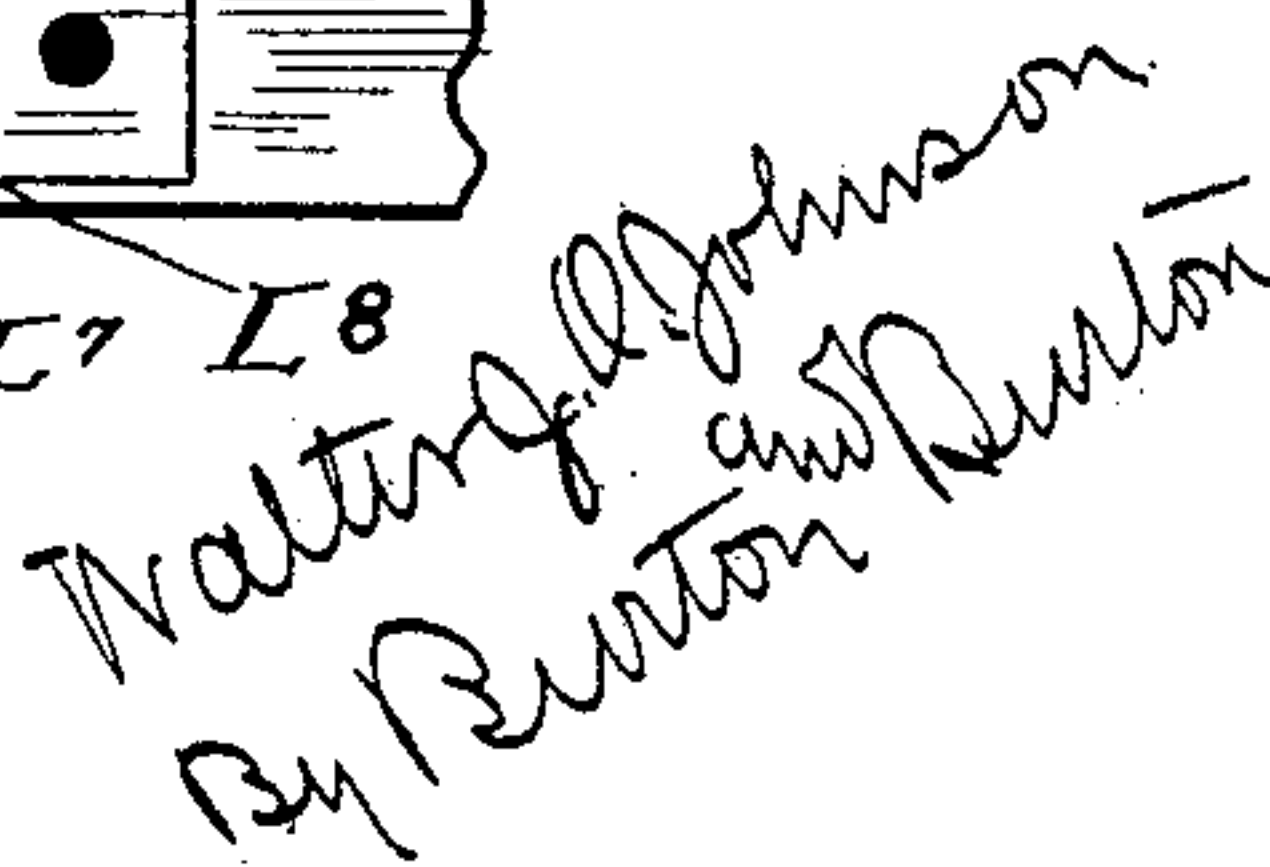 7 I8
Walter Johnson.
By Burton and Burton —